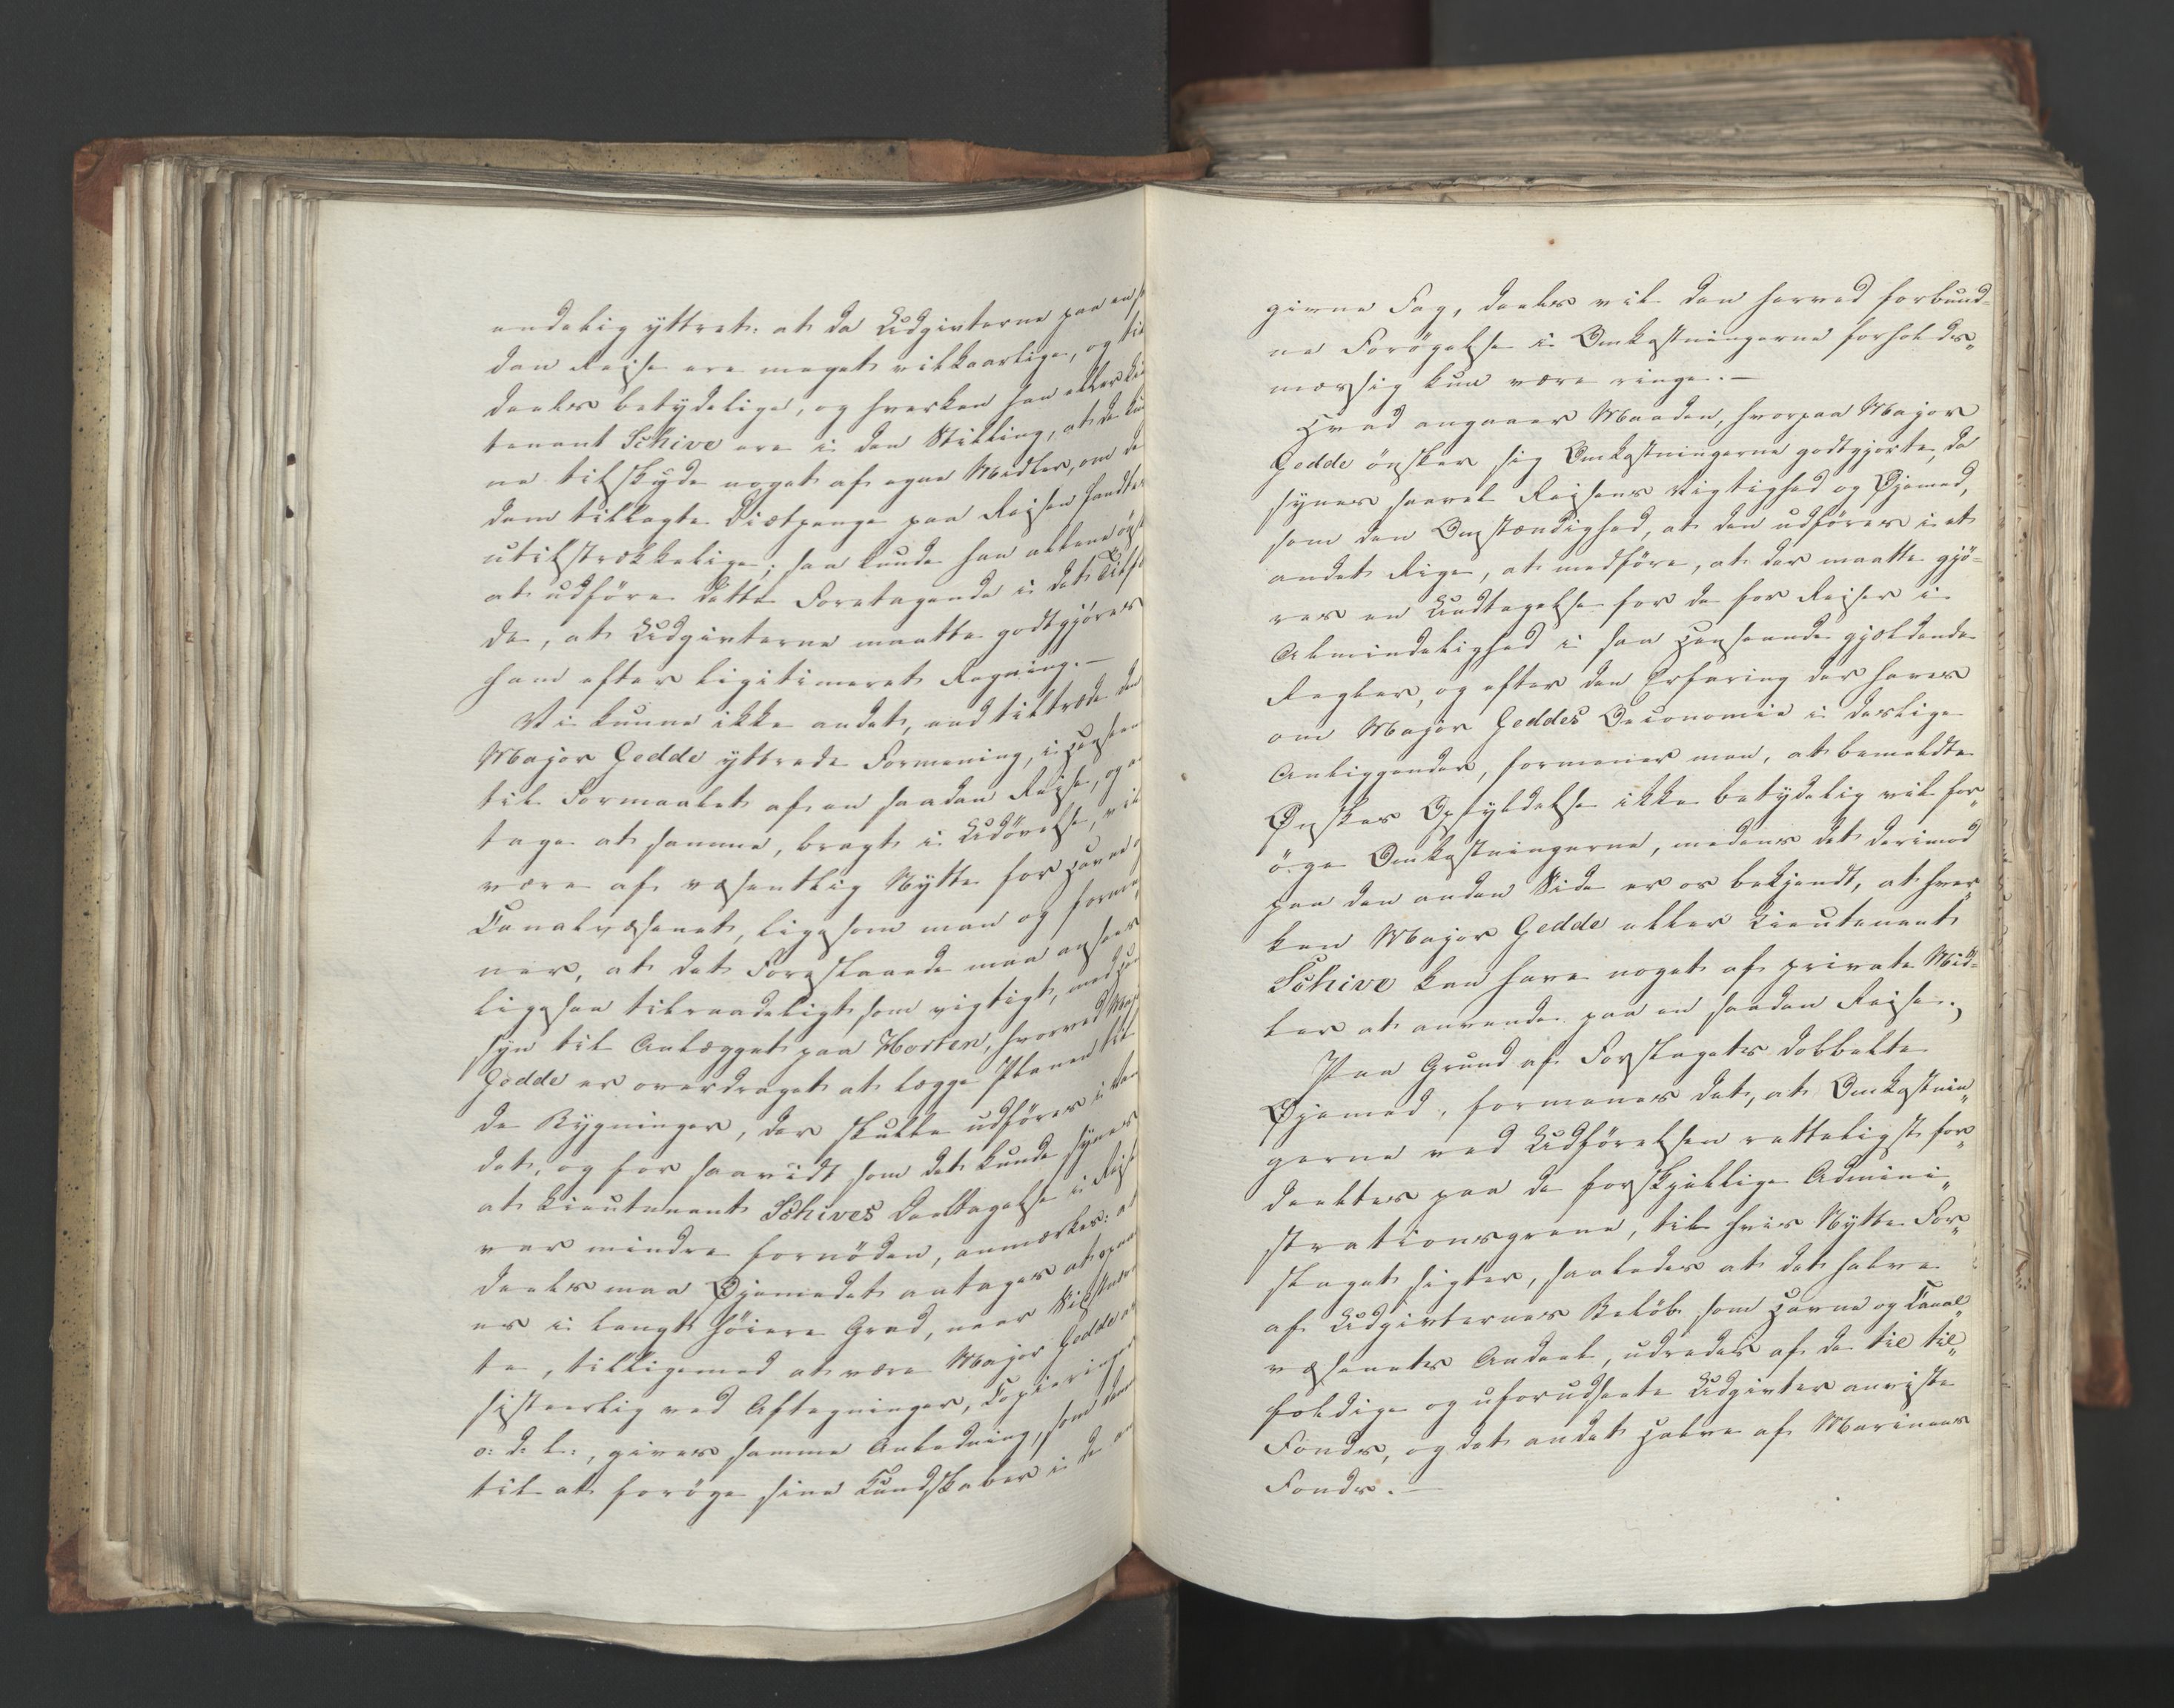 endelig yttret: at da Udgivterne paa en s
dan Reise ere meget vilkaarlige, og til
deels betydelige, og hverken han eller Lie
tenant Schive ere i den Stilling, at de kun
ne tilskyde noget af egne Midler, om de
dem tillagte Diætpenge paa Reisen fandtes
utilstrækkelige; saa kunde han allene öns
at udföre dette Foretagende i det Tilfæ
de, at Udgivterne maatte godtgjöres
ham efter legitimeret Regning.—
Vi kunne ikke andet, end tiltræde den
Major Gedde yttrede Formening, i Hensee
til Formaalet af en saadan Reise, og
tage at samme, bragt i Udövelse, vil
være af væsentlig Nytte for Havne
Canalvæsenet, ligesom man og forme
ner, at det Foreslaaede maa ansees
ligesaa tilraadeligt som vigtigt, med Hen
syn til Anlægget paa Horten, hvorved Maj
Gedde er overdraget at lægge Planen til
de Bygninger, der skulle udföres i
det, og for saavidt som det kunde synes
at Lieutenant Schives Deeltagelse i Reise
var mindre fornöden, anmærkes: at
deels maa Øjemedet antages at opnaa
es i langt höiere Grad, naar Sidstnævn
te, tilligemed at være Major Gedde as
sisteerlig ved Aftegninger, Copieringer
o: d: l:, gives samme Anledning, som denne
til at foröge sine Kundskaber i de an
givne Fag, deels vil den herved forbund-
ne Forögelse i Omkostningerne forholds„
mæssig kun være ringe.—
Hvad angaaer Maaden, hvorpaa Major
Gedde önsker sig Omkostningerne godtgjorte, da
synes saavel Reisens Vigtighed og Øjemed,
som den Omstændighed, at den udföres i et
andet Rige, at medföre, at der maatte gjö-
res en Undtagelse for de for Reiser i
Almindelighed i saa Henseende gjældende
Regler, og efter den Erfaring der haves
om Major Geddes Oeconomie i deslige
Anliggender, formener man, at bemeldte
Ønskes Opfyldelse ikke betydelig vil for„
öge Omkostningerne, medens det derimod
paa den anden Side er os bekjendt, at hver„
ken Major Gedde eller Lieutenant
Schive kan have noget af private Mid-
ler at anvende paa en saadan Reise.
Paa Grund af Forslagets dobbelte
Øjemed, formenes det, at Omkostnin„
gerne ved Udförelsen retteligst for„
deeltes paa de forskjellige Admini„
strationsgrene, til hvis Nytte For„
slaget sigter, saaledes at det halve
af Udgivternes Belöb som Havne og Canal„
væsenets Andeel, udredes af de til til„
foldige og uforudseete Udgivter anviste
Fonds, og det andet Halve af Marinens
Fonds.—